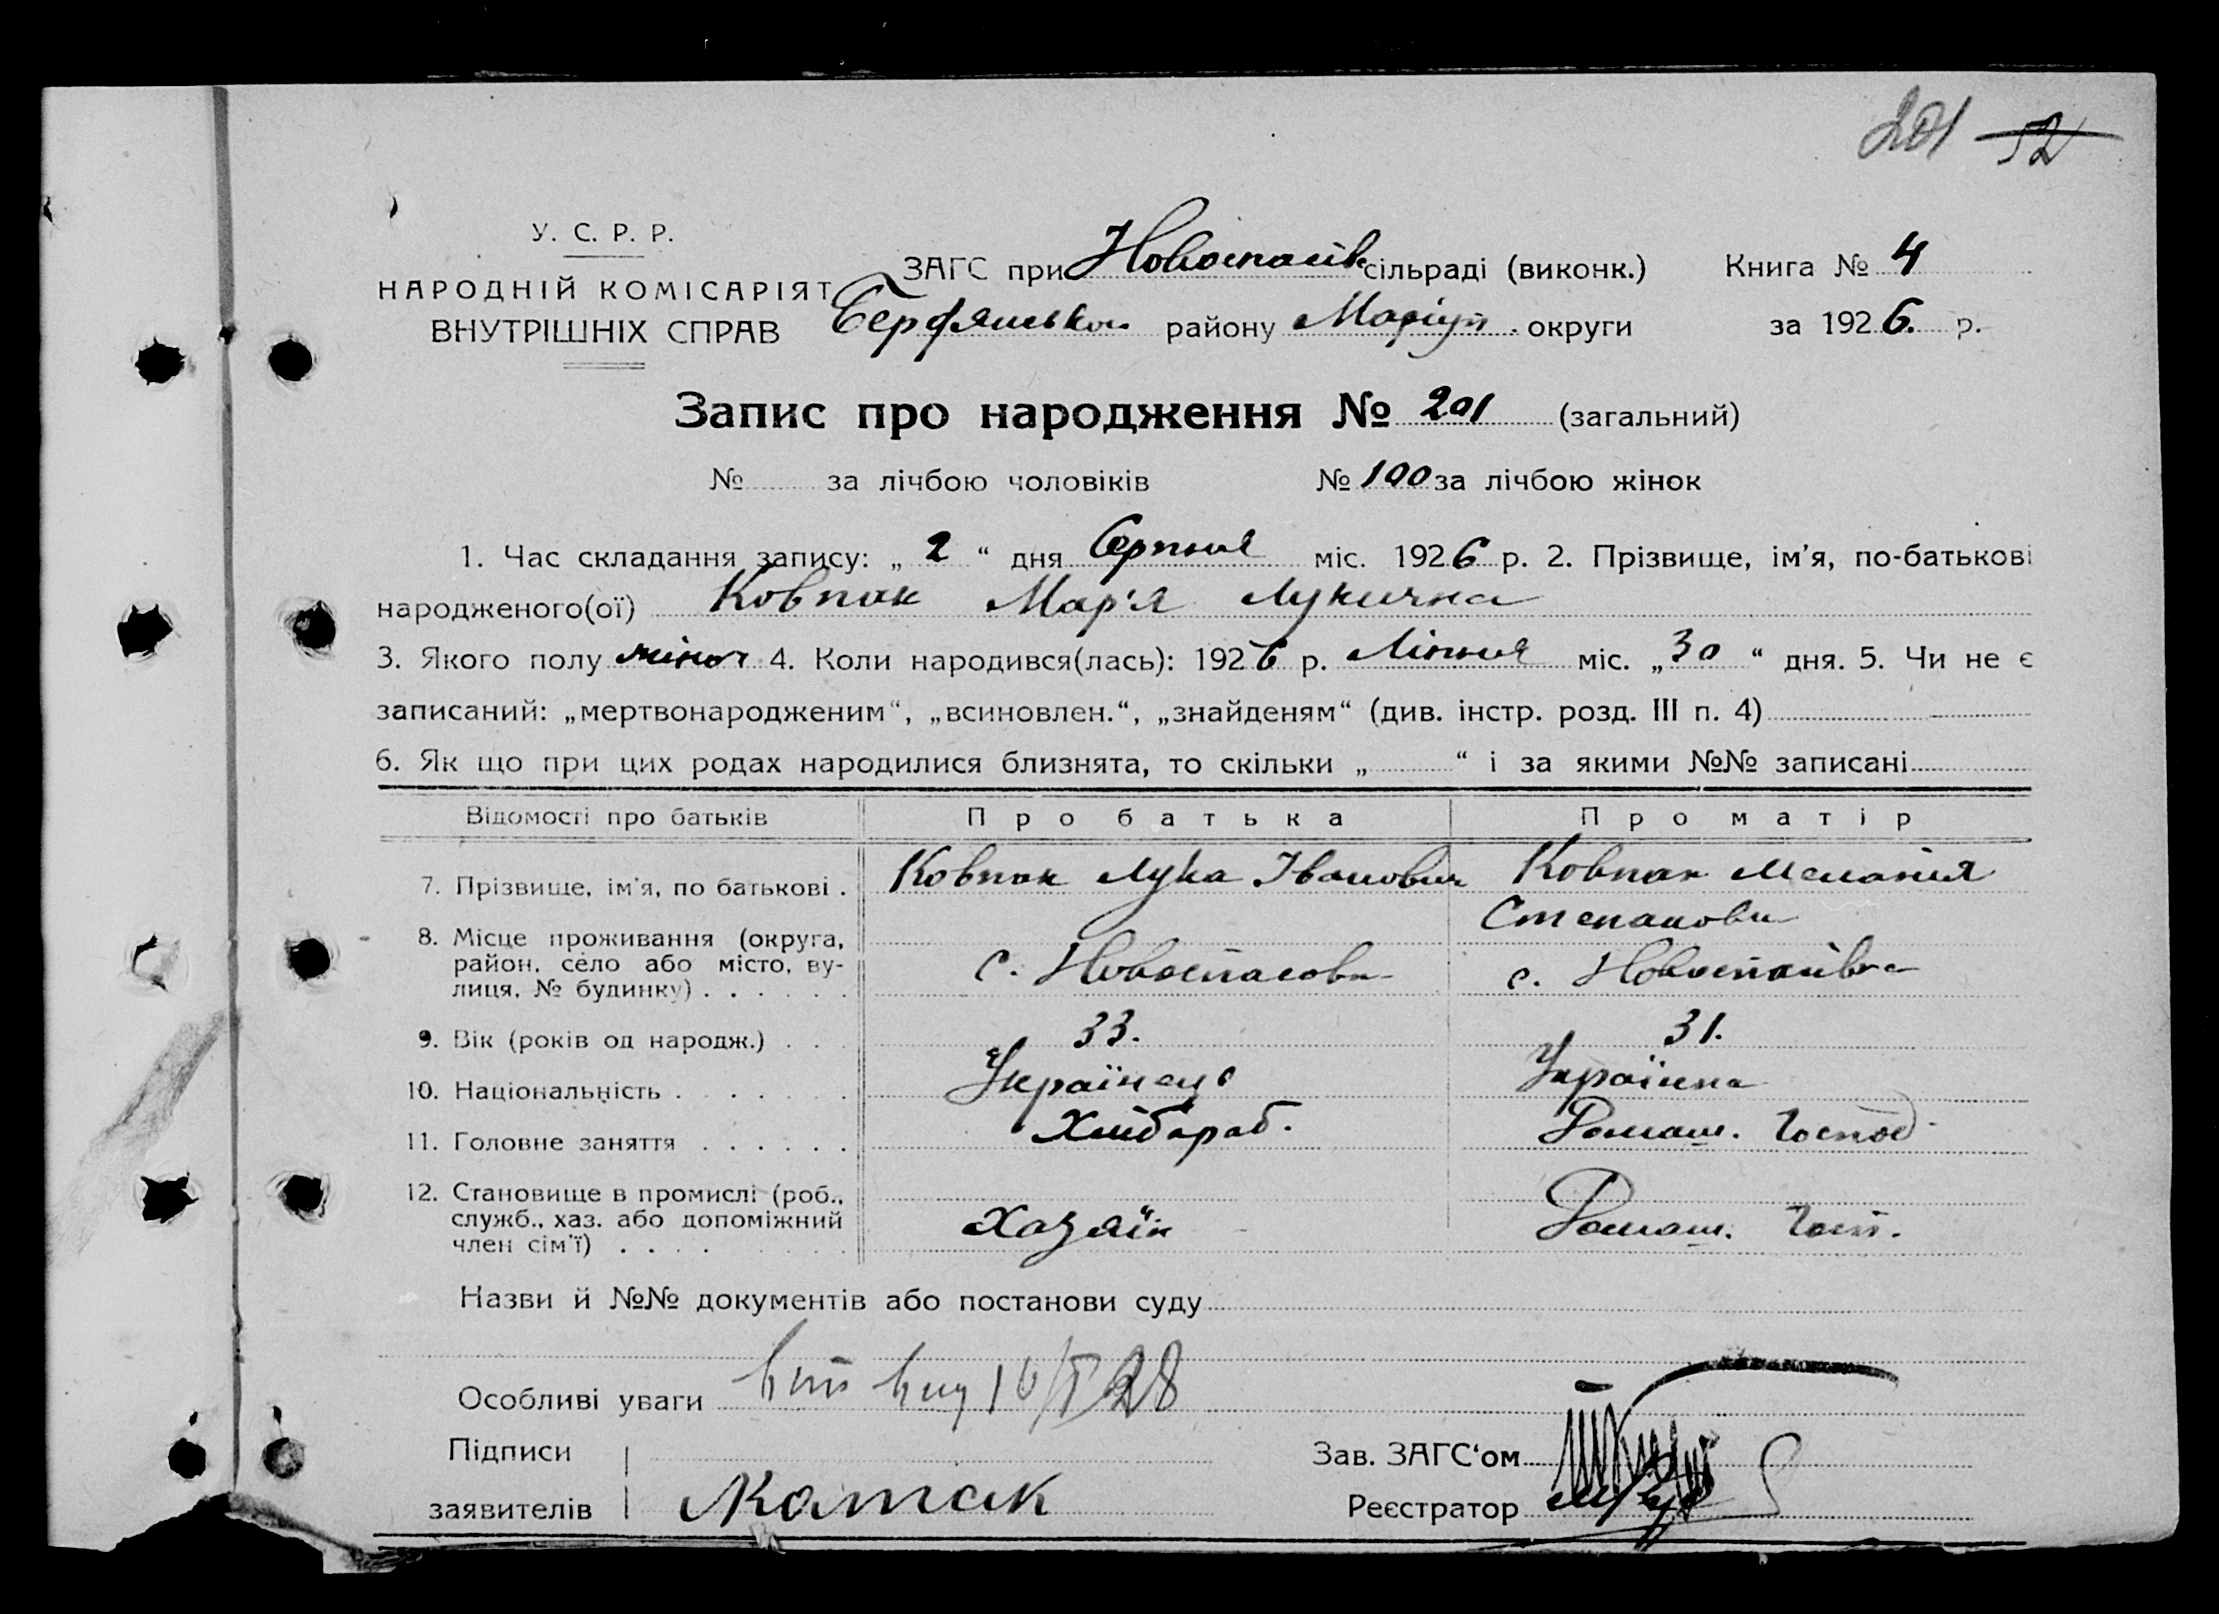 201 52
У. С. Р. Р.
НАРОДНІЙ КОМІСАРІЯТ
ВНУТРІШНІХ СПРАВ
ЗАГС при Новоспасівк сільраді (виконк.) Книга № 4
Бердянського району Маріуп. округи за 1926. р.
Запис про народження № 201 (загальний)
№ за лічбою чоловіків № 100 за лічбою жінок
1. Час складання запису: „ 2 “ дня Серпня міс. 1926 р. 2. Прізвище, ім'я, по-батькові
народженого(ої) Ковпак Мар'я Лукична
3. Якого полу жіноч 4. Коли народився(лась): 1926 р. Липня міс. „30 “ дня. 5. Чи не є
записаний: „мертвонародженим“, „всиновлен.“, „знайденям“ (див. інстр. розд. III п. 4)
6. Як що при цих родах народилися близнята, то скільки „ “ і за якими №№ записані
Відомості про батьків Про батька Про матір
7. Прізвище, ім'я, по батькові . Ковпак Лука Іванович Ковпак Меланія
Степанови
8. Місце проживання (округа,
район, село або місто, ву-
лиця, № будинку) . . . . . . с. Новоспасовк с. Новоспасівка
9. Вік (років од народж.) . . . 33. 31.
10. Національність . . . . . . . Українець Українка
11. Головне заняття . . . . . . Хлібороб. Домаш. Господ.
12. Становище в промислі (роб.,
служб., хаз. або допоміжний
член сім'ї) . . . . Хазяїн Домаш. Госп.
Назви й №№ документів або постанови суду
Особливі уваги
Підписи
заявителів
Зав. ЗАГС‘ом
Реєстратор